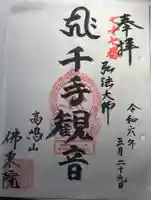 奉拝
令和六年
五月二十九日
弘法大師
千手観音
高嶋山
佛東院